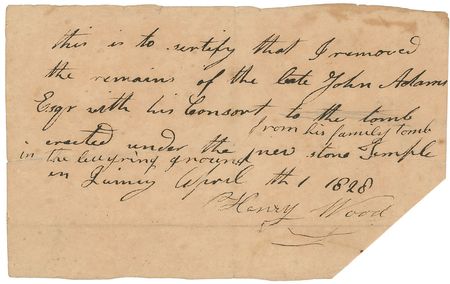 this is to certify that I removed
the remains of the late John Adams
Esqr with his Consort to the tomb
from his family tomb
erected under the new stone Temple
in the burying ground
in Quincy April th 1 1828
Henry Wood